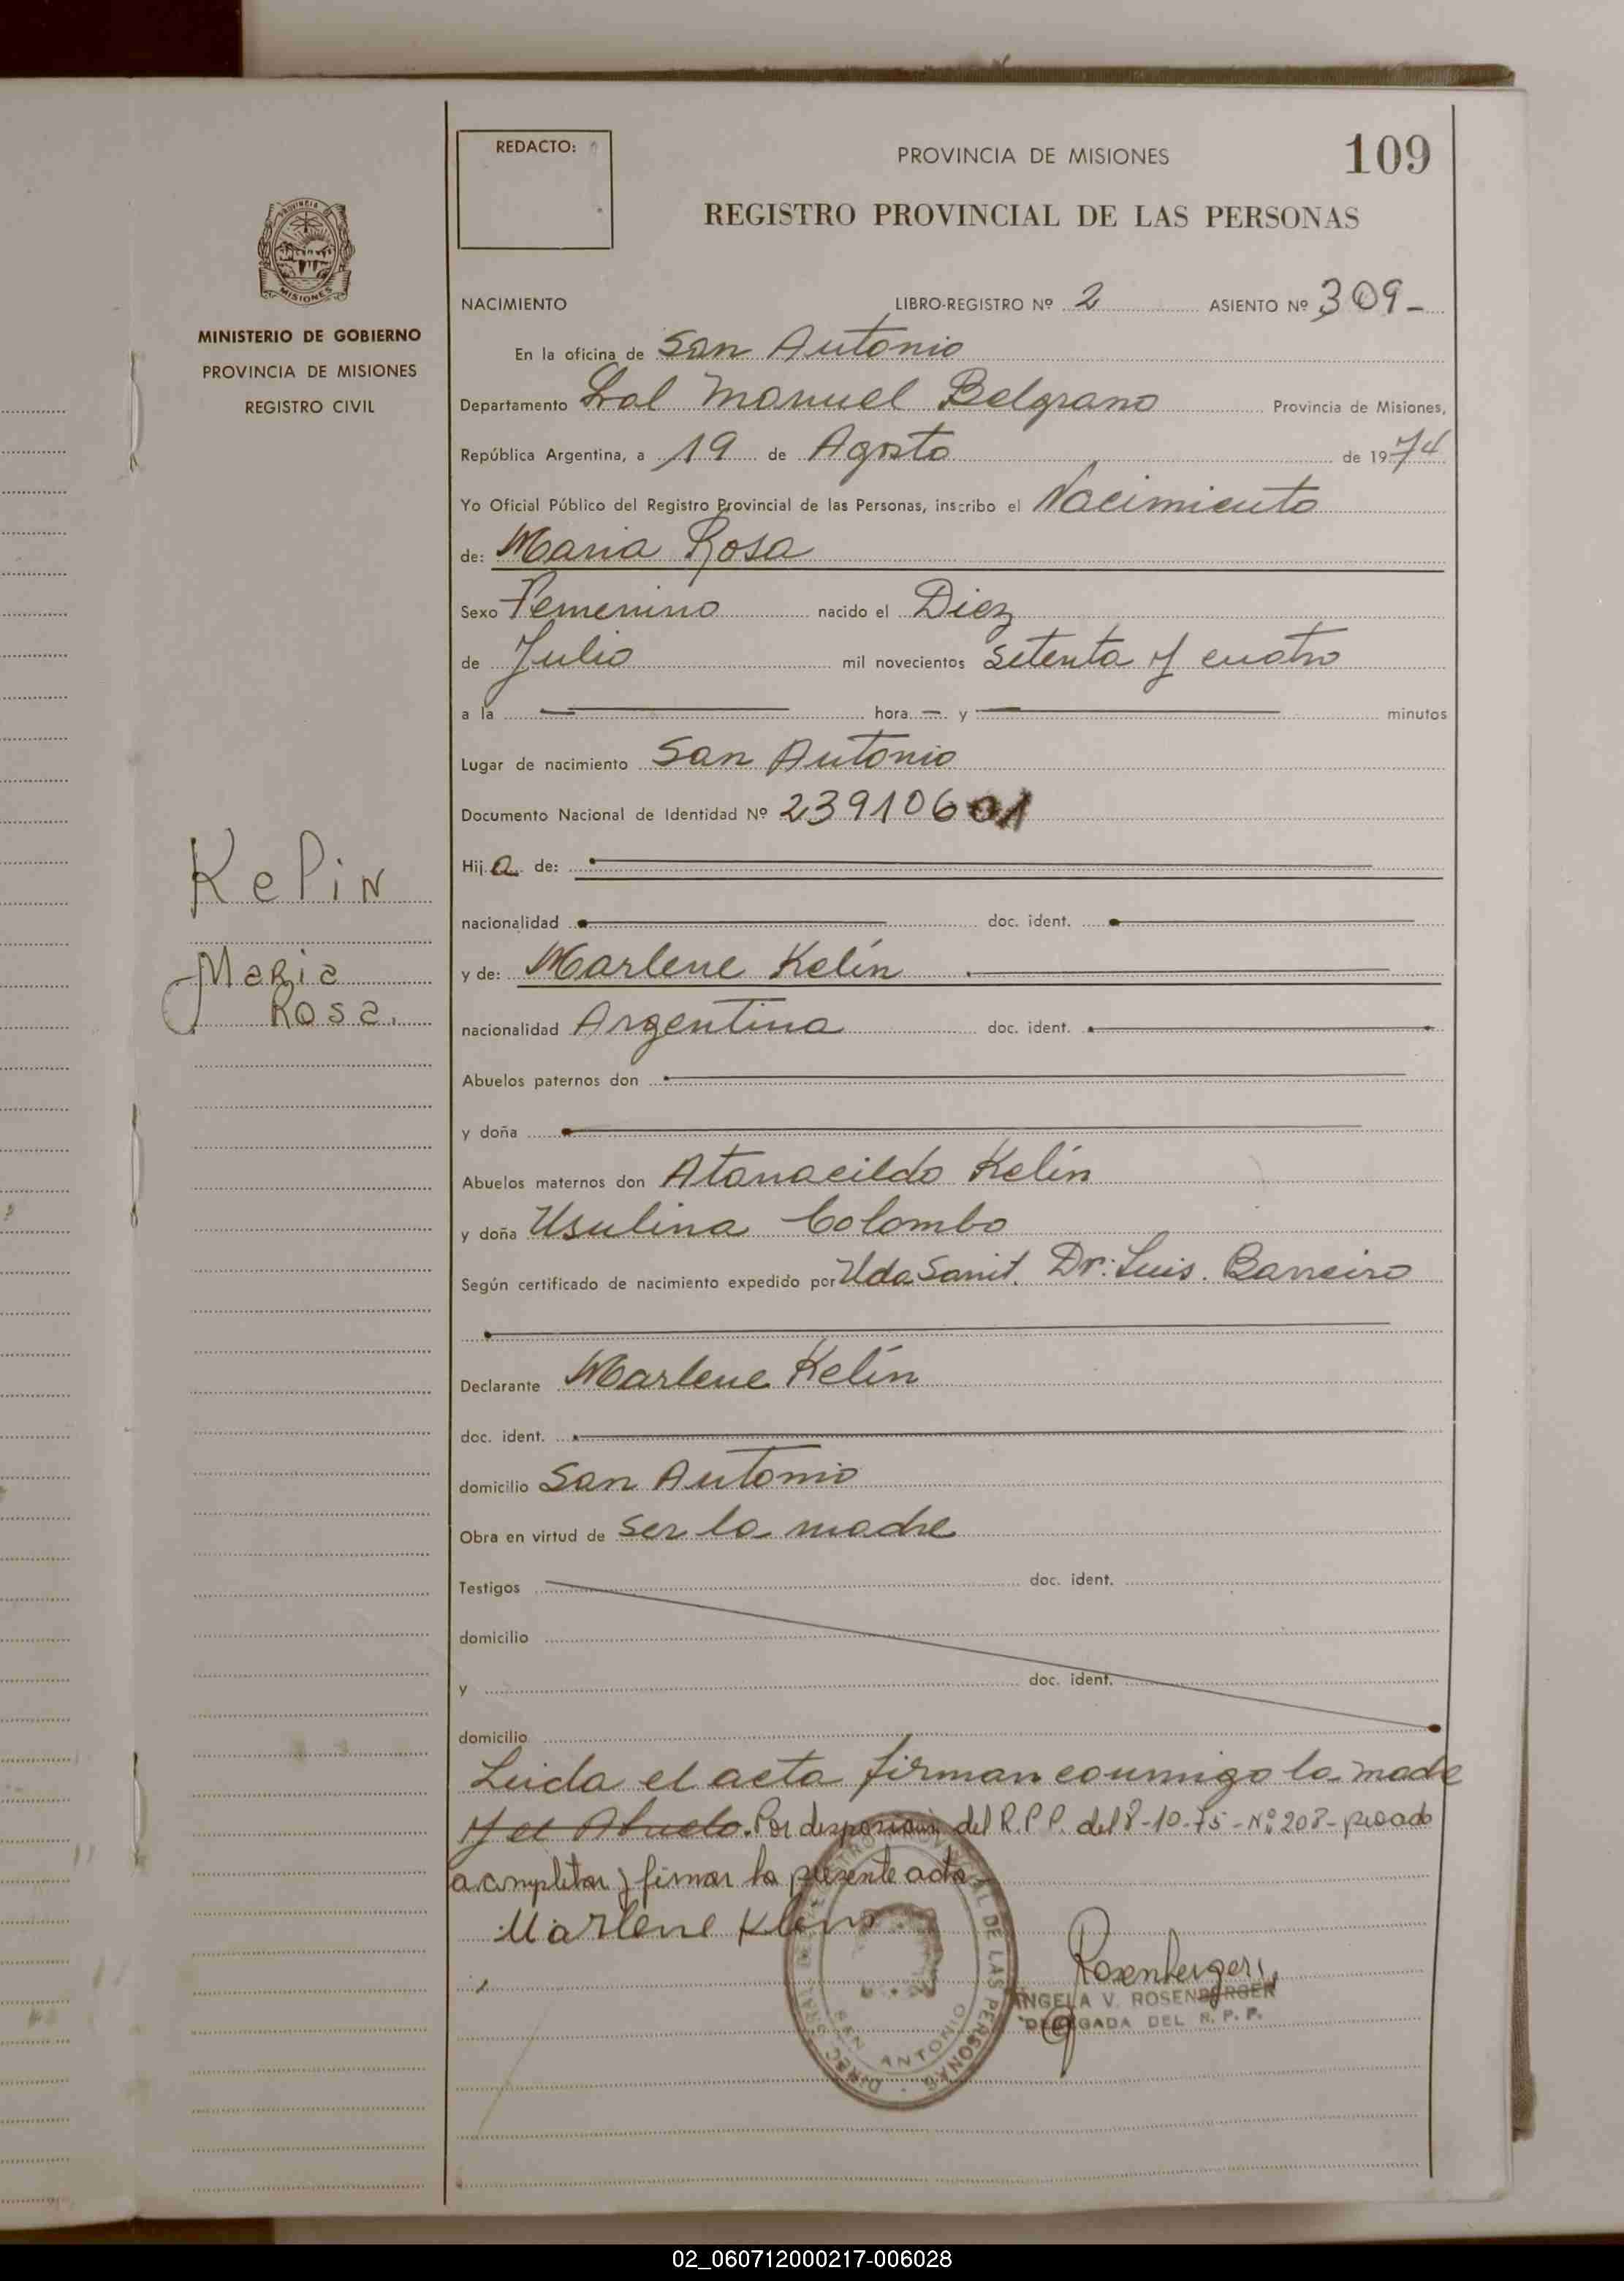 REDACTO:
PROVINCIA DE MISIONES
109
REGISTRO PROVINCIAL DE LAS PERSONAS
PROVINCIA DE
MISIONES
MINISTERIO DE GOBIERNO
PROVINCIA DE MISIONES
REGISTRO CIVIL
NACIMIENTO LIBRO-REGISTRO Nº 2 ASIENTO Nº 309-
En la oficina de San Antonio
Departamento Gral Manuel Belgrano Provincia de Misiones,
República Argentina, a 19 de Agosto de 1974
Yo Oficial Público del Registro Provincial de las Personas, inscribo el Nacimiento
de: Maria Rosa
Sexo Femenino nacido el Diez
de Julio mil novecientos setenta y cuatro
a la — hora — y — minutos
Lugar de nacimiento San Antonio
Documento Nacional de Identidad Nº 23910601
Hija de:
nacionalidad doc. ident.
y de: Marlene Kelín
nacionalidad Argentina doc. ident.
Abuelos paternos don
y doña
Abuelos maternos don Atanacildo Kelín
y doña Usulina Colombo
Según certificado de nacimiento expedido por Uda Sanit. Dr. Luis. Barreiro
Declarante Marlene Kelín
doc. ident.
domicilio San Antonio
Obra en virtud de ser la madre
Testigos doc. ident.
domicilio
y doc. ident.
domicilio
Leida el acta firman conmigo la madre
y el Abuelo. Por disposición del R.P.P. del 8-10-75-Nº 208- procedo
a completar y firmar la presente acta
Marlene Klein
Rosenberger
ANGELA V. ROSENBERGER
DELEGADA DEL R. P. P.
SAN ANTONIO
Kelin
Maria
Rosa.
02_060712000217-006028